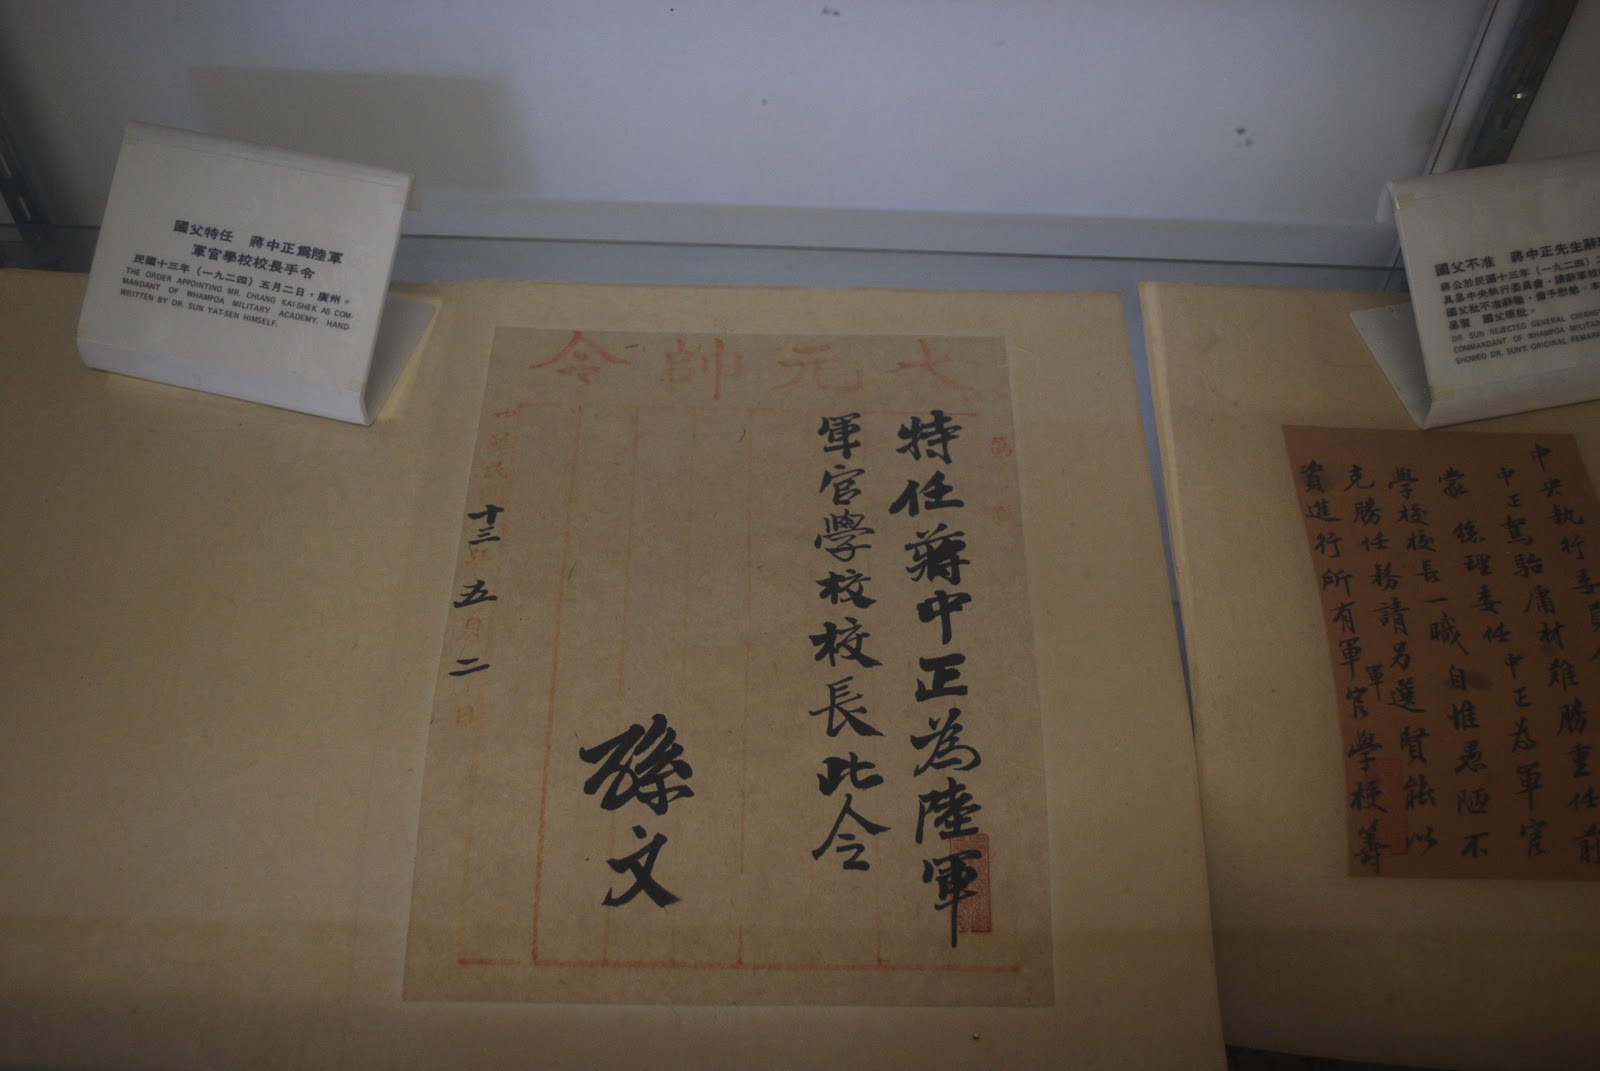 國父特任　蔣中正爲陸軍
軍官學校校長手令
民國十三年（一九二四）五月二日，廣州。
THE ORDER APPOINTING MR. CHIANG KAI-SHEK AS COM-
MANDANT OF WHAMPOA MILITARY ACADEMY. HAND-
WRITTEN BY DR. SUN YAT-SEN HIMSELF.
大元帥令
特任蔣中正為陸軍
軍官學校校長此令
孫文
十三年五月二日
國父不准　蔣中正先生辭
蔣公於民國十三年（一九二四）
具呈中央執行委員會，請辭軍校
國父批不准辭職，
國父原批。
DR. SUN REJECTED GENERAL CHIANG
COMMANDANT OF WHAMPOA MILITAR
SHOWED DR. SUN'S ORIGINAL REMAR
中央執行委員
中正駑駘庸材難勝重任前
蒙　孫理委任　中正為軍官
學校校長一職自惟愚陋不
克勝任務請另選賢能以
資進行所有軍官學校籌